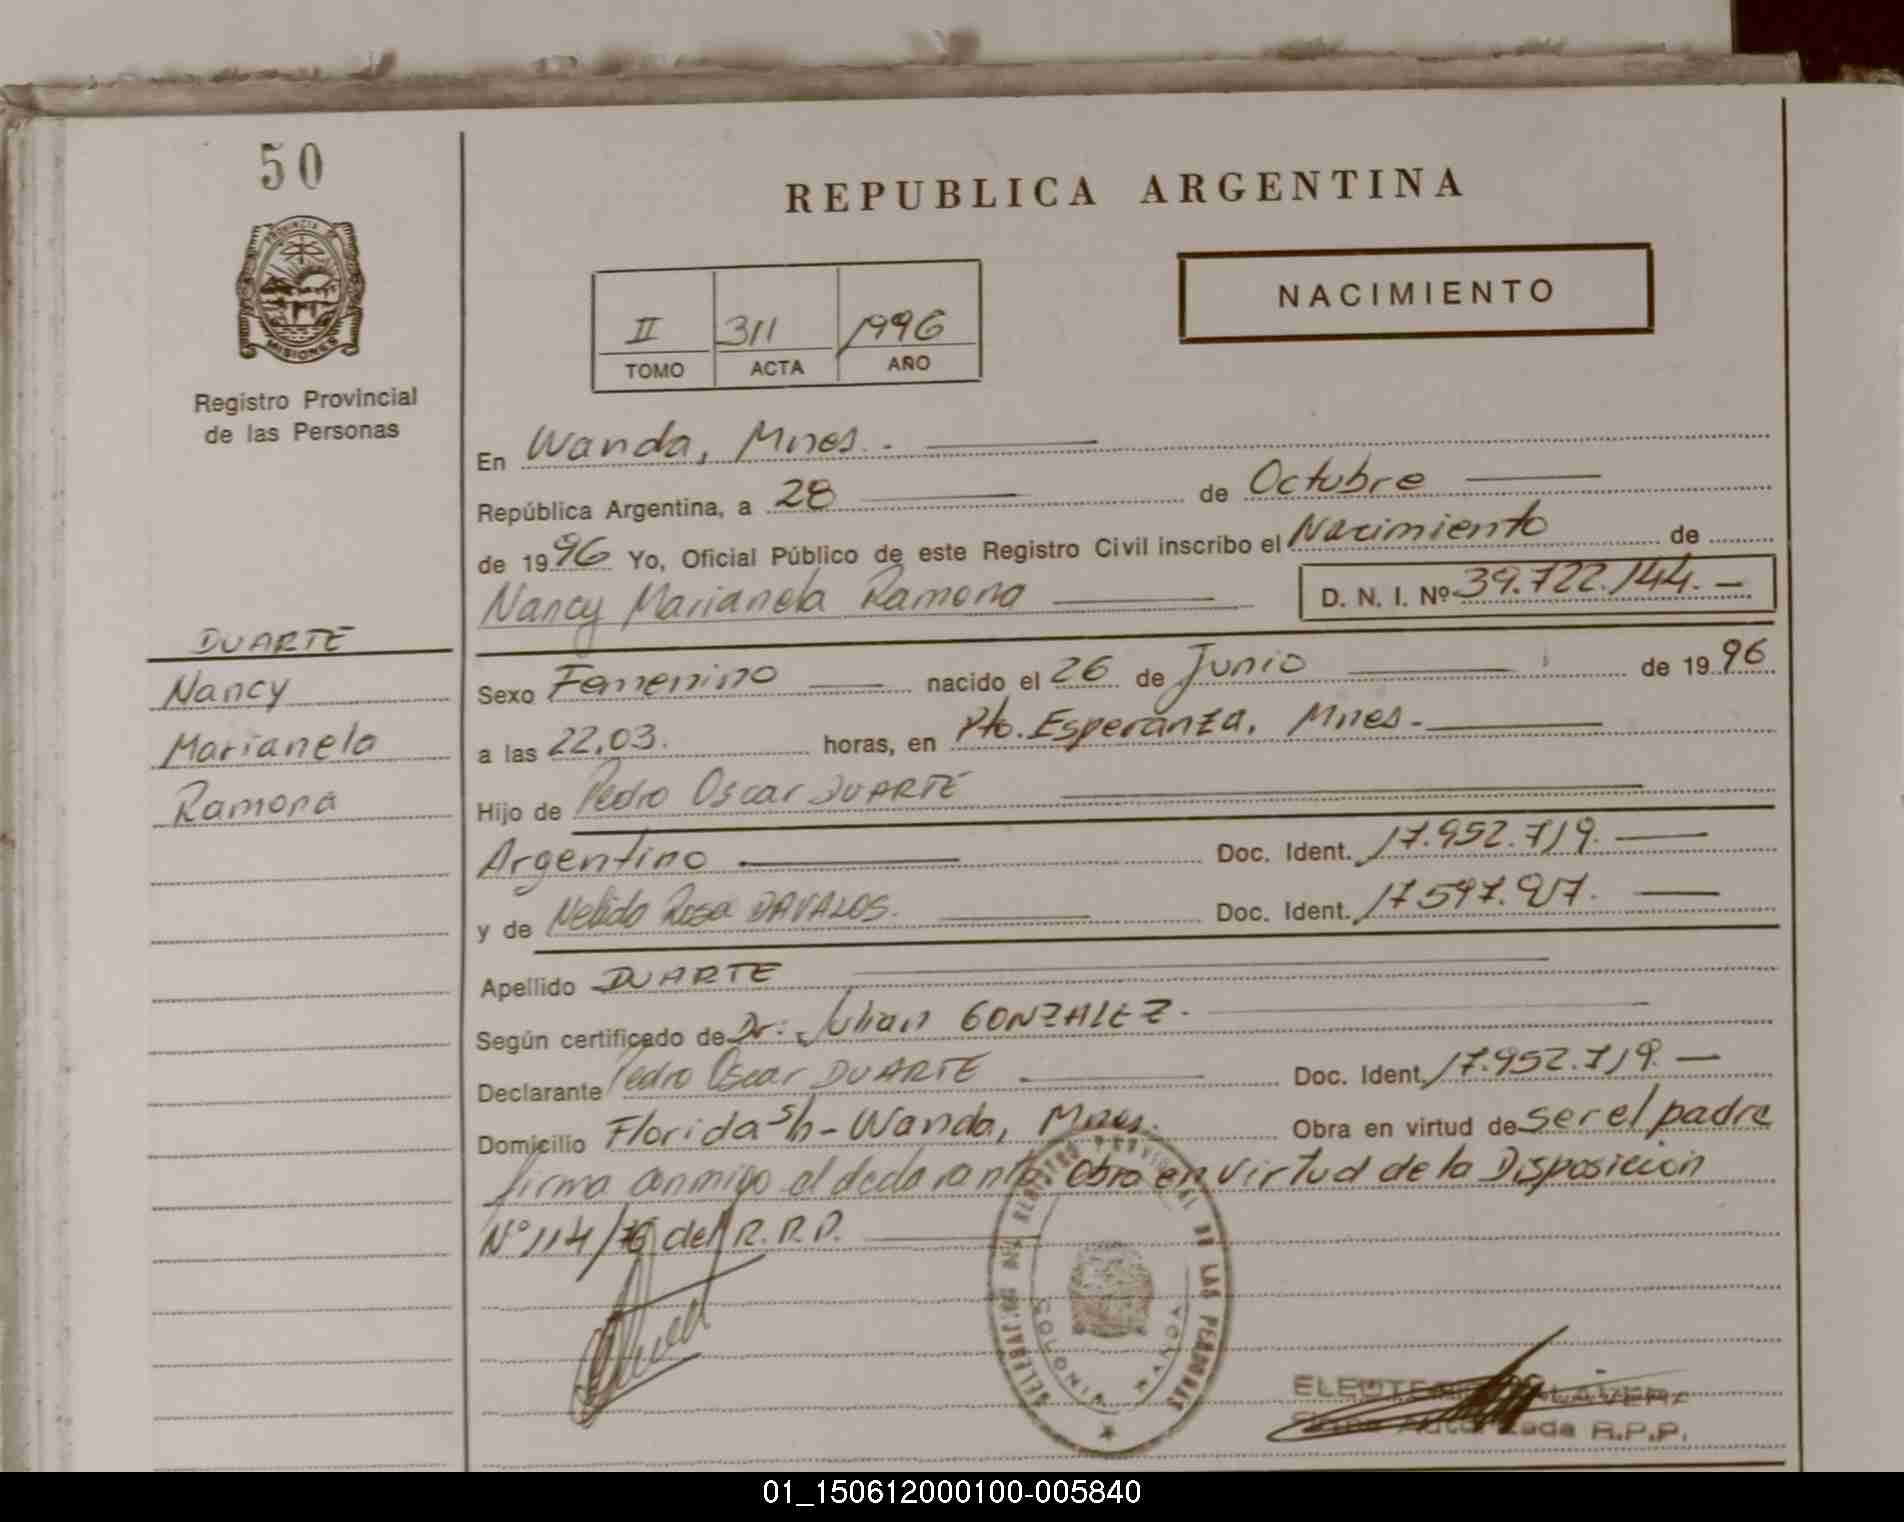 50
REPUBLICA ARGENTINA
NACIMIENTO
II 311 1996
TOMO ACTA AÑO
PROVINCIA DE
MISIONES
Registro Provincial
de las Personas
En Wanda, Mnes.
República Argentina, a 28 de Octubre
de 1996 Yo, Oficial Público de este Registro Civil inscribo el Nacimiento de
Nancy Marianela Ramona D. N. I. Nº 39.722.144.
DUARTE
Nancy
Marianela
Ramona
Sexo Femenino nacido el 26 de Junio de 1996
a las 22,03. horas, en Pto. Esperanza, Mnes.
Hijo de Pedro Oscar DUARTE
Argentino Doc. Ident. 17.952.719.
y de Nelida Rosa DAVALOS. Doc. Ident. 17597.
Apellido DUARTE
Según certificado de Dr: Julian GONZALEZ.
Declarante Pedro Oscar DUARTE Doc. Ident. 17.952.719.
Domicilio Florida s/n - Wanda, Mnes. Obra en virtud de ser el padre
firma conmigo el declarante Obra en virtud de la Disposicion
Nº 114/76 del R.R.P.
REGISTRO PROVINCIAL DE LAS PERSONAS
COLONIA WANDA
Autorizada R.P.P.
01_150612000100-005840